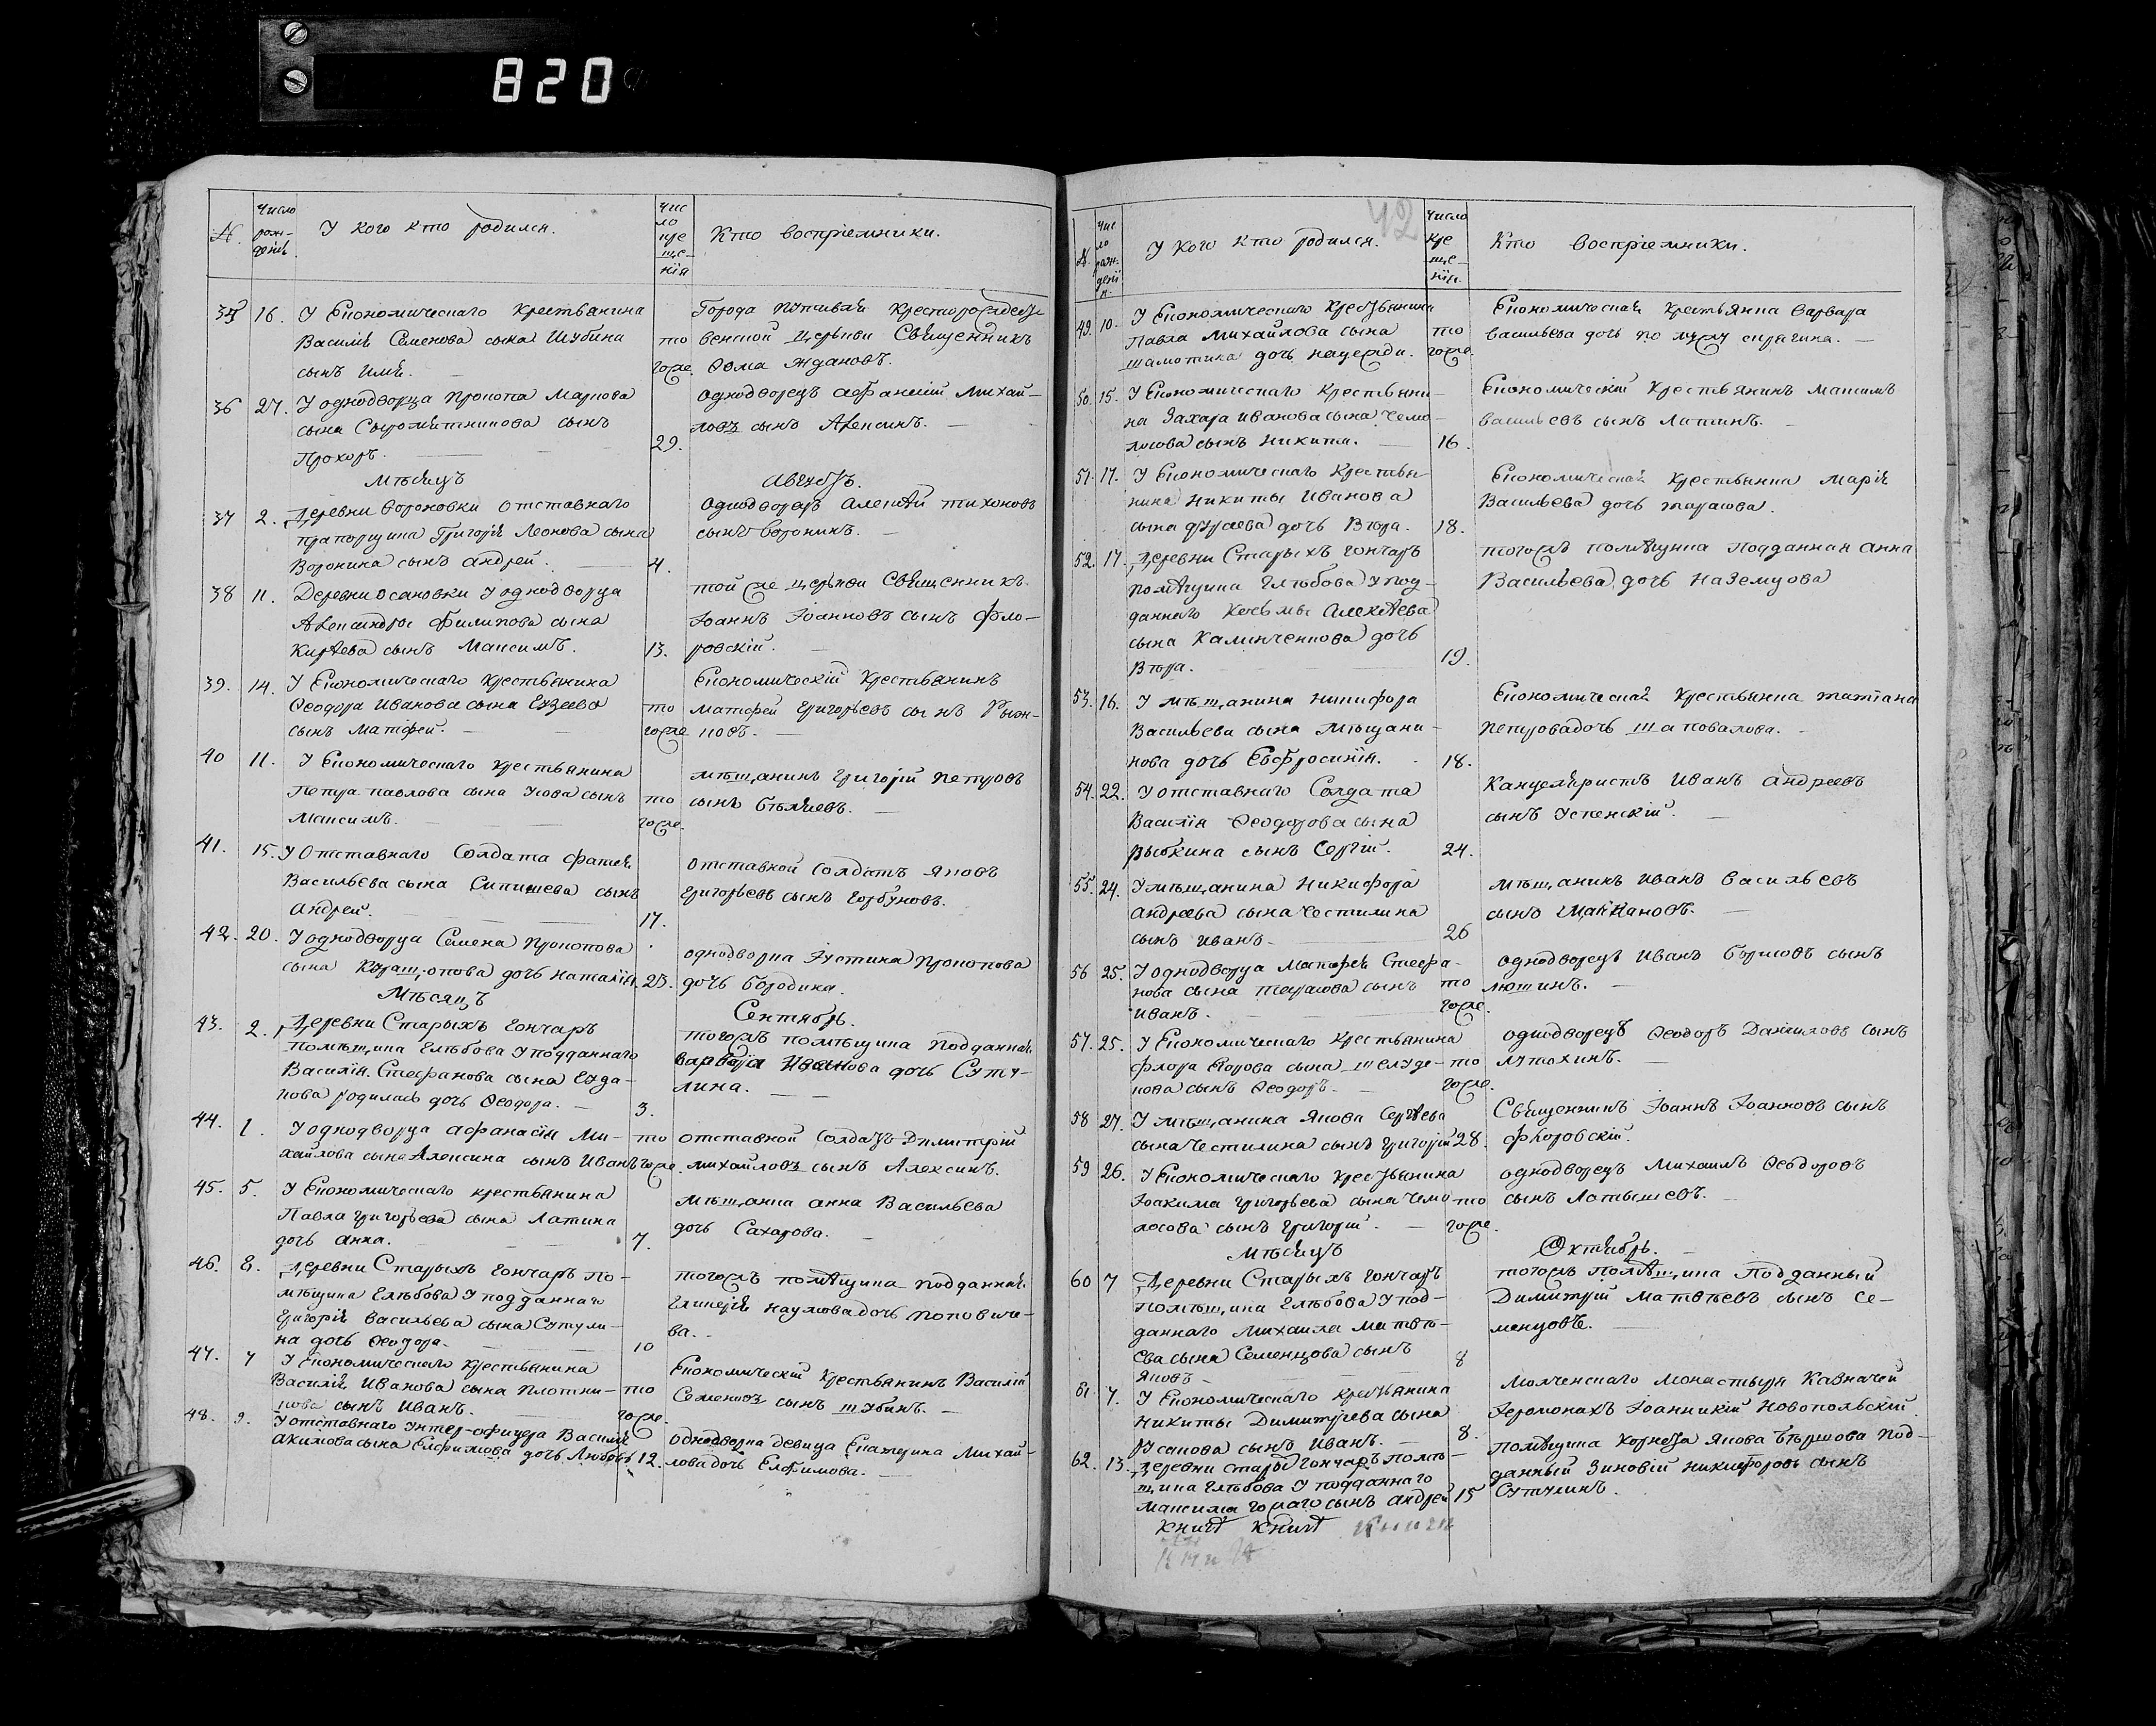 820
№.
Число рож-деніѣ
У кого кто родился.
Чис ло кре ще-нія
Кто воспріемники.
35 16. У Економическаго Крестьянина
Василія Семенова сына Шубина
сынъ Илія.
то гоже.
Города Путивля Христорождест
венской Церькви Священникъ
Ѳома Ждановъ.
36 27. У однодворца Прокопа Маркова
сына Сыромятникова сынъ
Прохоръ.
29.
Однодворецъ Афанасій Михай-
ловъ сынъ Алексинъ.
Мѣсяцъ Августъ.
37 2. Деревни Вороновки Отставнаго
прапорщика Григорія Леонова сына
Воронина сынъ Андрей.
4.
Однодворецъ Алексѣй Тихоновъ
сынъ Воронинъ.
38 11. Деревни Осановки У однодворца
Александра Филипова сына
Кирѣева сынъ Максимъ.
13.
той же Церькви Священникъ
Іоаннъ Іоанновъ сынъ Фло-
ровскій.
39. 14. У Економическаго Крестьянина
Ѳеодора Иванова сына
сынъ Матфей.
то гоже
Економическій Крестьянинъ
Матфей Григорьевъ сынъ Рыж-
ковъ.
40 11. У Економическаго Крестьянина
Петра Павлова сына Усова сынъ
Максимъ.
то гоже.
Мѣщанинъ Григорій Петровъ
сынъ Бѣляевъ.
41. 15. У Отставнаго Солдата Фатея
Васильева сына сынъ
Андрей.
17.
Отставной Солдатъ Яковъ
Григорьевъ сынъ Горбуновъ.
42. 20. У однодворца Семена Прокопова
сына дочь Наталія.
23.
однодворка Устина Прокопова
дочь Бородина.
Мѣсяцъ Сентябрь.
43. 2. Деревни Старыхъ Гончаръ
Помѣщика Глѣбова У подданнаго
Василія Стефанова сына Гада-
кова родилась дочь Ѳеодора.
3.
тогожъ помѣщика подданная
Варвара Иванова дочь Суту-
лина.
44. 1. У однодворца Афанасія Ми-
хайлова сына Алексина сынъ Иванъ
то гоже.
Отставной Солдатъ Димитрій
Михайловъ сынъ Алексинъ.
45. 5. У Економическаго крестьянина
Павла Григорьева сына Латина
дочь Анна.
7.
Мѣщанка Анна Васильева
дочь Сахарова.
46. 8. Деревни Старыхъ Гончаръ по-
мѣщика Глѣбова У подданнаго
Григорія Васильева сына Сутули-
на дочь Ѳеодора.
10
тогожъ помѣщика подданная
Гликерія Наумова дочь Попович-
ва.
47. 7 У Економическаго крестьянина
Василія Иванова сына Плотни-
кова сынъ Иванъ.
то гоже.
Економическій Крестьянинъ Василій
Семеновъ сынъ Шубинъ.
48. 9. У отставнаго Унтер-офицера Василія
Акимова сына Елфимова дочь Любовь
12.
однодворка девица Екатерина Михай-
лова дочь Елфимова.
42
№.
Чис ло рож-дені я.
У кого кто родился.
Число кре ще-нія.
Кто воспріемники.
49. 10. У Економическаго Крестьянина
Павла Михайлова сына
Шамотина дочь
то гоже.
Економическая Крестьянка Варвара
Васильева дочь по мужу Спрягина.
50. 15. У Економическаго Крестьяни-
на Захара Иванова сына Чемо-
лосова сынъ Никита.
16.
Економическій Крестьянинъ Максимъ
Васильевъ сынъ Латинъ.
51. 17. У Економическаго Крестья-
нина Никиты Иванова
сына дочь Вѣра.
18.
Економическая Крестьянка Марія
Васильева дочь Тарасова.
52. 17. Деревни Старыхъ Гончаръ
помѣщика Глѣбова У под-
даннаго Косьмы Алексѣева
сына Калинченкова дочь
Вѣра.
19.
тогожъ помѣщика Подданная Анна
Васильева дочь Наземцова
53. 16. У мѣщанина Никифора
Васильева сына Мѣщани-
нова дочь Евфросинія.
18.
Економическая Крестьянка Татіана
Петрова дочь Шаповалова.
54. 22. У отставнаго Солдата
Василія Ѳеодорова сына
Рыбкина сынъ Сергій.
24.
Канцеляристъ Иванъ Андреевъ
сынъ Успенскій.
55. 24. У мѣщанина Никифора
Андреева сына Честилина
сынъ Иванъ.
26
мѣщанинъ Иванъ Васильевъ
сынъ
56 25. У однодворца Матфея Стефа-
нова сына Тарасова сынъ
Иванъ.
то гоже.
однодворецъ Иванъ Борисовъ сынъ
57. 25. У Економическаго Крестьянина
Флора Егорова сына Шелуде-
кова сынъ Ѳеодоръ.
то гоже.
однодворецъ Ѳеодоръ Даниловъ сынъ
Лутохинъ.
58 27. У мѣщанина Якова Сергѣева
сына Честилина сынъ Григорій
28.
Священникъ Іоаннъ Іоанновъ сынъ
Флоровскій.
59 26. У Економическаго Крестьянина
Іоакима Григорьева сына Чемо
лосова сынъ Григорій.
то гоже.
однодворецъ Михаилъ Ѳеодоровъ
сынъ Латышевъ.
Мѣсяцъ Октябрь.
60 7 Деревни Старыхъ Гончаръ
помѣщика Глѣбова У под-
даннаго Михаила Матвѣ-
ева сына Семенцова сынъ
Яковъ
8
тогожъ Помѣщика Подданный
Димитрій Матвѣевъ сынъ Се-
менцовъ.
61. 7. У Економическаго крестьянина
Никиты Димитріева сына
Русанова сынъ Иванъ.
8.
Молченскаго Монастыря Казначей
Іеромонахъ Іоанникій Новопольскій
62. 13. Деревни Стары Гончаръ помѣ-
щика Глѣбова У подданнаго
Максима сынъ Андрей
15
помѣщика Корнета Якова под-
данный Зиновій Никифоровъ сынъ
Сутулинъ.
Книгѣ Книгѣ